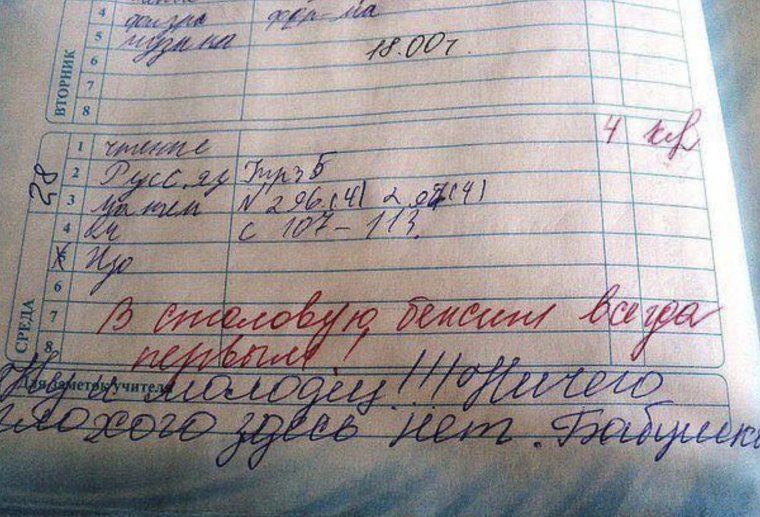 4 физра форма
5 музыка
18.00 г.
6
7
8
ВТОРНИК
28
1 чтение 4
2 Русс. яз Упр 5
3 матем N 296(4) 297(4)
4 с 107 - 113.
5 Изо
6
7 В столовую бежит всегда
8 первым!
СРЕДА
Для заметок учителя
Ну и молодец!!! Ничего
плохого здесь нет. Бабушка